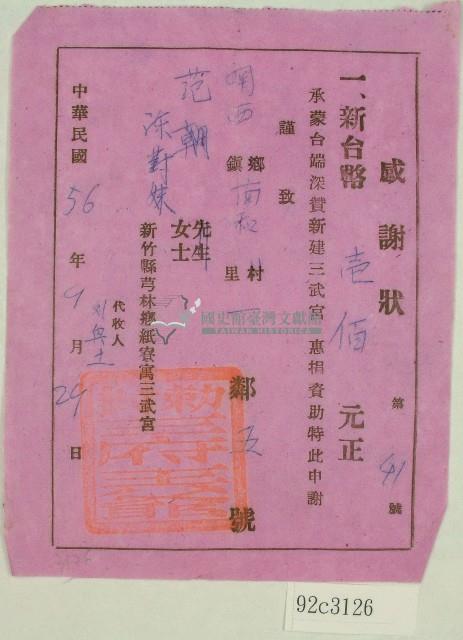 感謝狀
第 41 號
一、新台幣 壱佰 元正
承蒙台端深贊新建三武宮 惠捐資助特此申謝
謹致
關西 鄉鎮 南和 村里 一 鄰 五 號
范朝
陳對妹 先生女士
新竹縣芎林鄉紙寮窩三武宮
代收人
中華民國 56 年 9 月 29 日
國史館臺灣文獻館
TAIWAN HISTORICA
92c3126